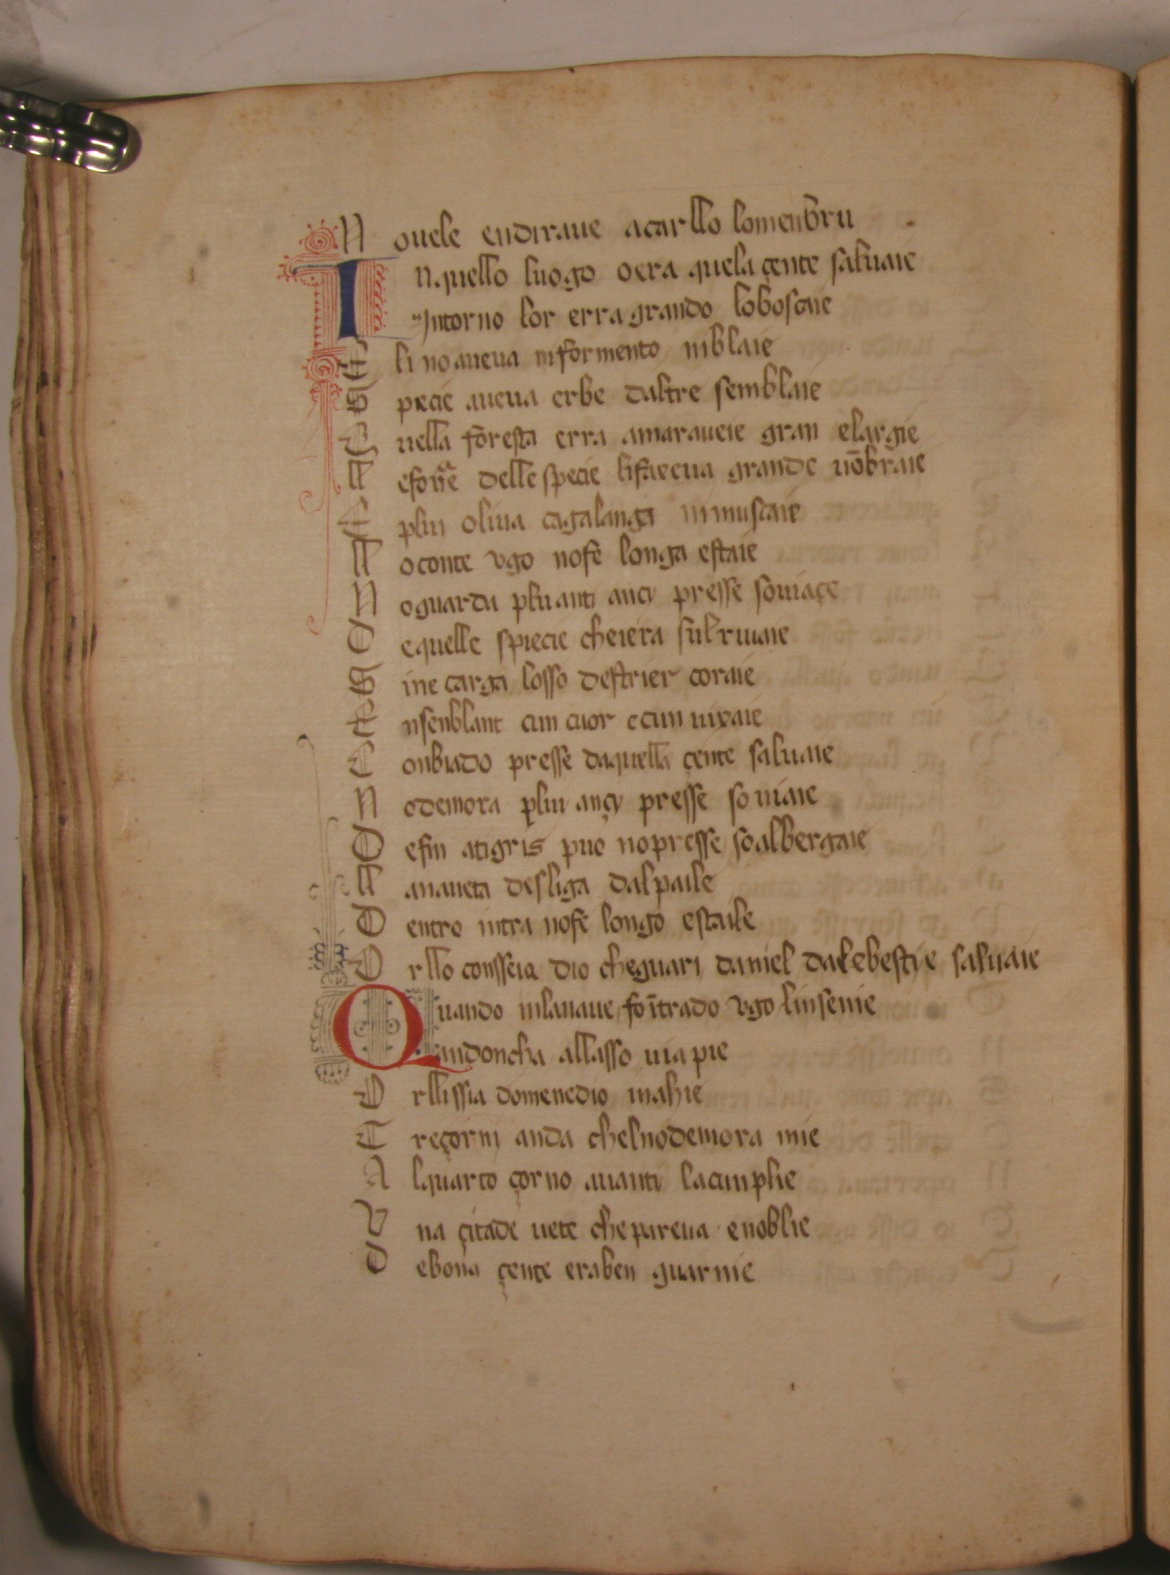 N ouele endiraue acarllo lomenbru
I Nquello luogo oera quela çente saluaie
Jntorno lor erra grando loboscaie
E li no aueua niformento niblaie
S pecie aueua erbe daltre semblaie
Q uella foresta erra amaraueie gran elargie
ll efoiie delle specie lifaceua grande uōbraie
E pluu oliua cagalanga
ll oconte vgo nofe longa estaie
N oguarda pluanti ançi presse souiaçe
D equelle spiecie cheiera sulriuaie
S ine carga losso destrier coraie
E nsenblant cun cuor ecun uixaie
C onbiado presse daquella çente saluaie
N odemora pluu ançy presse so uiaie
D efin atigris puo nopresse soalbergaie
ll anaueta desliga dalpaile
D entro intra nofe longo estaile
O rllo consseia dio cheguari daniel dalebestye saluaie
Quando inlanaue fo itrado vgo linsenie
andoncha allasso uia pie
O rllissia domenedio inahie
T reçorni anda chelnodemora mie
A lquarto çorno auanti lacunplie
V na çitade uete chepareua enoblie
D ebona çente eraben guarnie